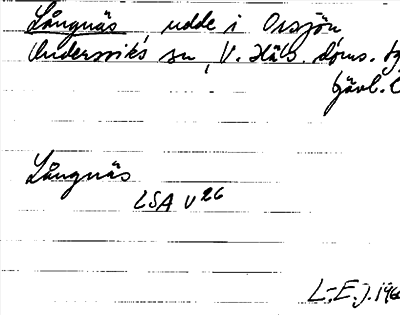 Långnäs, udde i Orsjön,
Undersviks sn, V. Häls. doms.
Gävl. l
Långnäs
LSA V26
L-E. J. 196